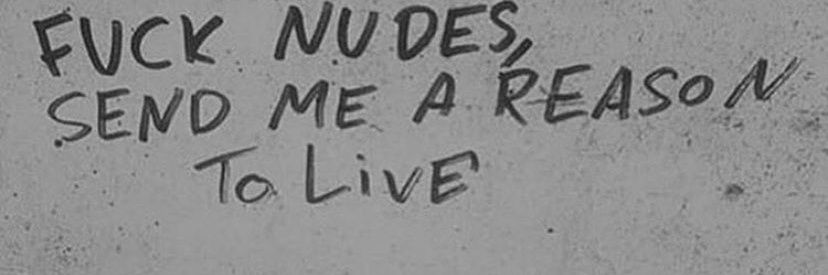 FUCK NUDES,
SEND ME A REASON
To LiVE